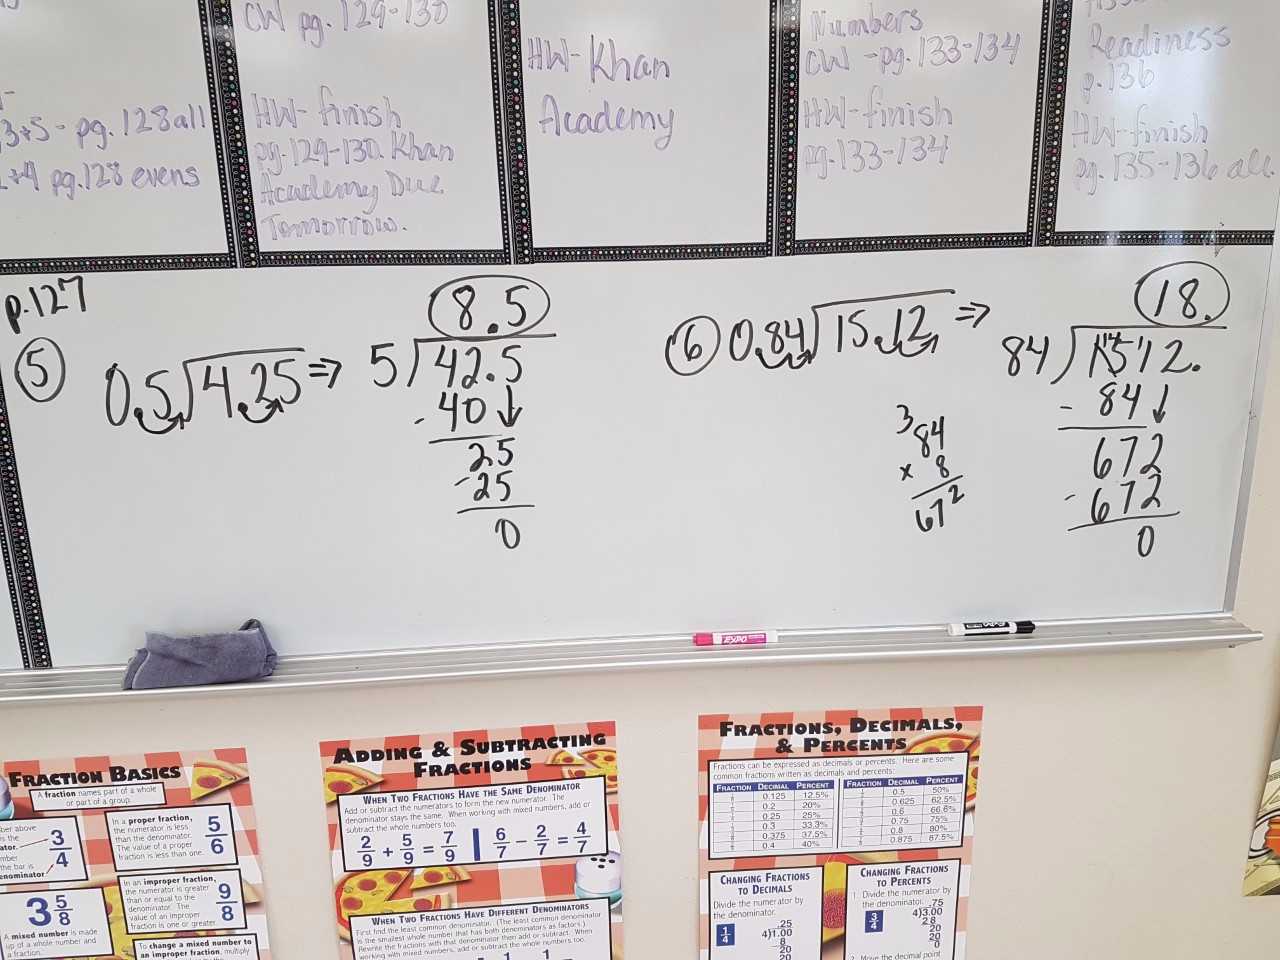 CW pg. 129-130
HW- finish
pg. 129-130. Khan
Academy Due
Tomorrow.
3+5 - pg. 128 all
+4 pg. 128 evens
HW- Khan
Academy
Numbers
CW - pg. 133-134
HW- finish
pg. 133-134
Readiness
p. 136
HW- finish
pg. 135-136 all
p. 127
5
0.5 4.25 ⇒
8.5
5 42.5
- 40 ↓
25
- 25
0
6
0.84 15.12 ⇒
3
84
x 8
672
18.
84 1512.
- 84 ↓
672
- 672
0
EXPO
FRACTION BASICS
A fraction names part of a whole
or part of a group.
3/4
In a proper fraction,
the numerator is less
than the denominator.
The value of a proper
fraction is less than one.
5/6
In an improper fraction,
the numerator is greater
than or equal to the
denominator. The
value of an improper
fraction is one or greater.
9/8
3 5/8
A mixed number is made
up of a whole number and
a fraction.
To change a mixed number to
an improper fraction, multiply
ADDING & SUBTRACTING
FRACTIONS
WHEN TWO FRACTIONS HAVE THE SAME DENOMINATOR
Add or subtract the numerators to form the new numerator. The
denominator stays the same. When working with mixed numbers, add or
subtract the whole numbers too.
2/9 + 5/9 = 7/9 6/7 - 2/7 = 4/7
WHEN TWO FRACTIONS HAVE DIFFERENT DENOMINATORS
First find the least common denominator. (The least common denominator
is the smallest whole number that has both denominators as factors.)
Rewrite the fractions with that denominator then add or subtract. When
working with mixed numbers, add or subtract the whole numbers too.
FRACTIONS, DECIMALS,
& PERCENTS
Fractions can be expressed as decimals or percents. Here are some
common fractions written as decimals and percents:
FRACTION DECIMAL PERCENT
0.125 12.5%
0.2 20%
0.25 25%
0.3 33.3%
0.375 37.5%
0.4 40%
FRACTION DECIMAL PERCENT
0.5 50%
0.625 62.5%
0.6 66.6%
0.75 75%
0.8 80%
0.875 87.5%
CHANGING FRACTIONS
TO DECIMALS
Divide the numerator by
the denominator.
1/4
.25
4 1.00
8
20
20
CHANGING FRACTIONS
TO PERCENTS
1. Divide the numerator by
the denominator.
3/4
.75
4 3.00
28
20
20
0
2. Move the decimal point